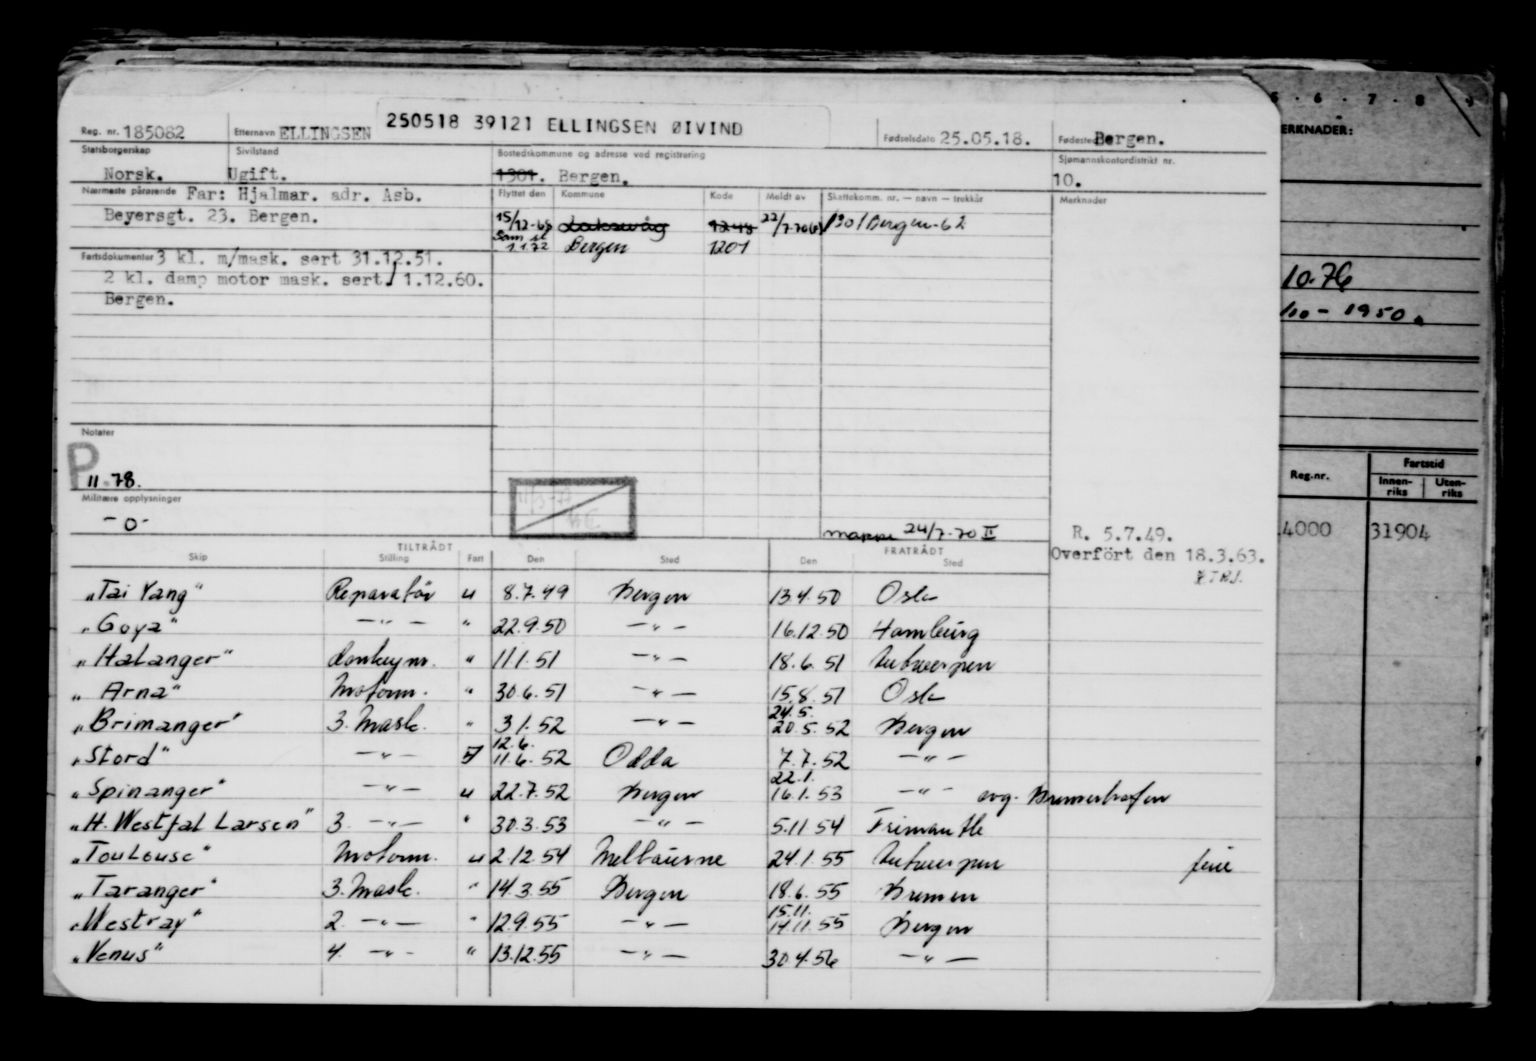 250518 39121 ELLINGSEN ØIVIND
Reg. nr. 185082 Etternavn ELLINGSEN Fødselsdato 25.05.18. Fødested Bergen.
Statsborgerskap Sivilstand Bostedskommune og adresse ved registrering Sjømannskontordistrikt nr.
Norsk. Ugift. 1301. Bergen. 10.
Nærmeste pårørende Far: Hjalmar. adr. Asb. Flyttet den Kommune Kode Meldt av Skattekomm. nr. — navn — trekkår Merknader
Beyersgt. 23. Bergen.
15/12-65 Laksevåg 1248 22/7-70 1301 Bergen-62
Sam. sl. 1.1.72 Bergen 1201
Fartsdokumenter 3 kl. m/mask. sert 31.12.51.
2 kl. damp motor mask. sert. 1.12.60.
Bergen.
Notater
P
11.78.
Militære opplysninger
-0-
mappe 24/7-70 II
R. 5.7.49.
Overfört den 18.3.63.
TILTRÅDT FRATRÅDT
Skip Stilling Fart Den Sted Den Sted
"Tai Yang" Reparatör u 8.7.49 Bergen 13.4.50 Oslo
"Goya" —"— " 22.9.50 —"— 16.12.50 Hamburg
"Halanger" donkeym. " 11.1.51 —"— 18.6.51 Antwerpen
"Arna" Motorm. " 30.6.51 —"— 15.8.51 Oslo
"Brimanger" 3. Mask. " 3.1.52 —"— 24.5. 20.5.52 Bergen
"Stord" —"— 12.6. 11.6.52 Odda 7.7.52 —"—
"Spinanger" —"— u 22.7.52 Bergen 22.1. 16.1.53 —"— avg. Bremerhafen
"H. Westfal Larsen" 3. —"— " 30.3.53 —"— 5.11.54 Frimantle
"Toulouse" Motorm. u 2.12.54 Melbourne 24.1.55 Antwerpen ferie
"Taranger" 3. Mask. " 14.3.55 Bergen 18.6.55 Bremen
"Westray" 2. —"— " 12.9.55 —"— 15.11. 14.11.55 Bergen
"Venus" 4. —"— " 13.12.55 —"— 30.4.56 —"—
5 · 6 · 7 · 8 · 9
ERKNADER:
10.76
/10 - 1950.
Reg.nr. Fartstid
Innen-riks Uten-riks
4000 31904